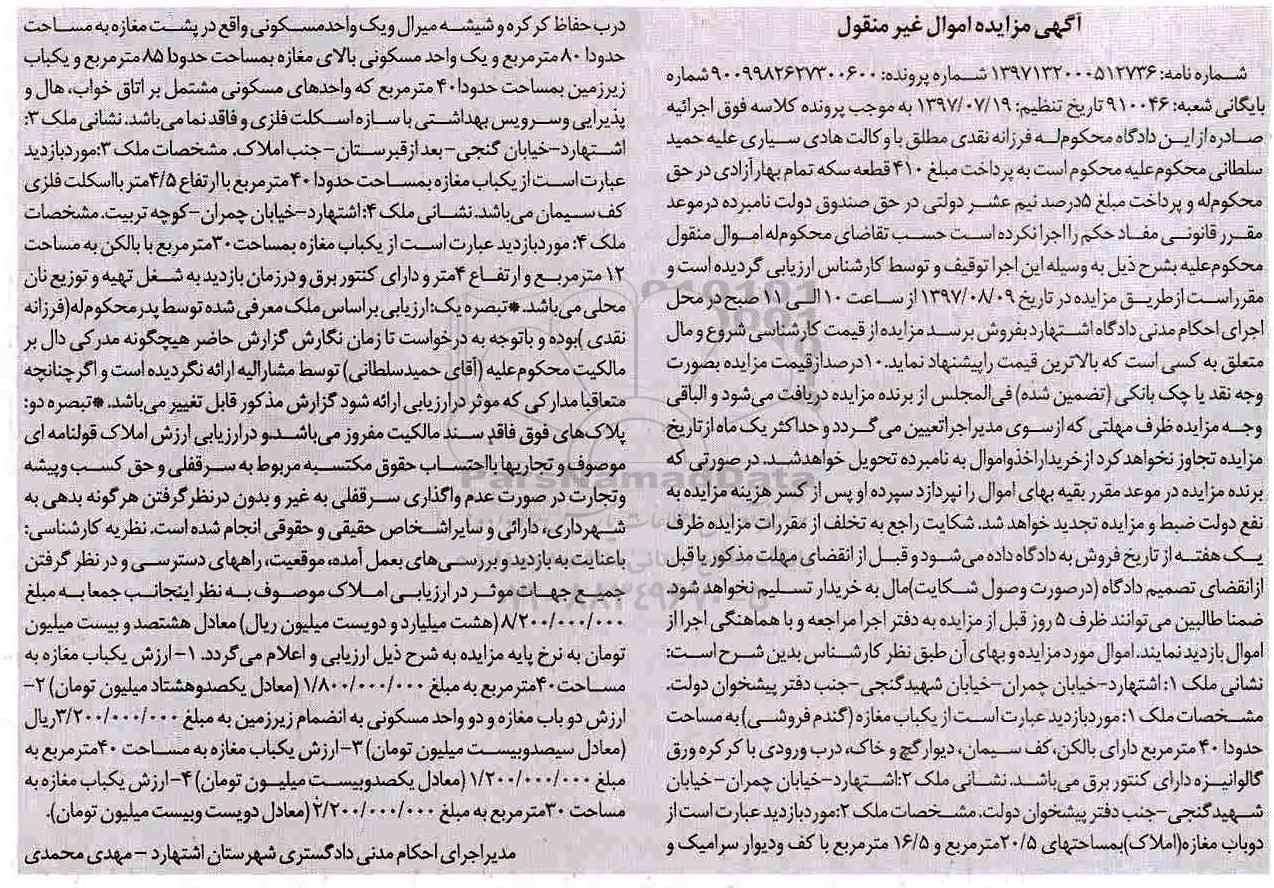 آگهی مزایده اموال غیر منقول
شماره نامه: ۱۳۹۷۱۳۲۰۰۰۵۱۲۷۳۶ شماره پرونده: ۹۰۰۹۹۸۲۶۲۷۳۰۰۶۰۰ شماره
بایگانی شعبه: ۹۱۰۰۴۶ تاریخ تنظیم: ۱۳۹۷/۰۷/۱۹ به موجب پرونده کلاسه فوق اجرائیه
صادره از این دادگاه محکوم‌له فرزانه نقدی مطلق با وکالت هادی سیاری علیه حمید
سلطانی محکوم‌علیه محکوم است به پرداخت مبلغ ۴۱۰ قطعه سکه تمام بهار آزادی در حق
محکوم‌له و پرداخت مبلغ ۵درصد نیم عشر دولتی در حق صندوق دولت نامبرده درموعد
مقرر قانونی مفاد حکم را اجرا نکرده است حسب تقاضای محکوم‌له اموال منقول
محکوم‌علیه بشرح ذیل به وسیله این اجرا توقیف و توسط کارشناس ارزیابی گردیده است و
مقرراست ازطریق مزایده در تاریخ ۱۳۹۷/۰۸/۰۹ از ساعت ۱۰ الی ۱۱ صبح در محل
اجرای احکام مدنی دادگاه اشتهارد بفروش برسد مزایده از قیمت کارشناسی شروع و مال
متعلق به کسی است که بالاترین قیمت را پیشنهاد نماید. ۱۰درصدازقیمت مزایده بصورت
وجه نقد یا چک بانکی (تضمین شده) فی‌المجلس از برنده مزایده دریافت می‌شود و الباقی
وجه مزایده ظرف مهلتی که ازسوی مدیر اجرا تعیین می گردد و حداکثر یک ماه از تاریخ
مزایده تجاوز نخواهد کرد ازخریدار اخذ واموال به نامبرده تحویل خواهدشد. در صورتی که
برنده مزایده در موعد مقرر بقیه بهای اموال را نپردازد سپرده او پس از کسر هزینه مزایده به
نفع دولت ضبط و مزایده تجدید خواهد شد. شکایت راجع به تخلف از مقررات مزایده ظرف
یک هفته از تاریخ فروش به دادگاه داده می‌شود و قبل از انقضای مهلت مذکور یا قبل
ازانقضای تصمیم دادگاه (درصورت وصول شکایت)مال به خریدار تسلیم نخواهد شود.
ضمنا طالبین می‌توانند ظرف ۵ روز قبل از مزایده به دفتر اجرا مراجعه و با هماهنگی اجرا از
اموال بازدید نمایند. اموال مورد مزایده و بهای آن طبق نظر کارشناس بدین شرح است:
نشانی ملک ۱: اشتهارد-خیابان چمران-خیابان شهیدگنجی-جنب دفتر پیشخوان دولت.
مشخصات ملک ۱: موردبازدید عبارت است از یکباب مغازه (گندم فروشی) به مساحت
حدودا ۴۰ مترمربع دارای بالکن، کف سیمان، دیوار گچ و خاک، درب ورودی با کرکره ورق
گالوانیزه دارای کنتور برق می‌باشد. نشانی ملک ۲:اشتهارد-خیابان چمران-خیابان
شهیدگنجی-جنب دفتر پیشخوان دولت. مشخصات ملک ۲:موردبازدید عبارت است از
دوباب مغازه(املاک)بمساحتهای ۲۰/۵مترمربع و ۱۶/۵ مترمربع با کف ودیوار سرامیک و
درب حفاظ کرکره و شیشه میرال ویک واحدمسکونی واقع در پشت مغازه به مساحت
حدودا ۸۰ مترمربع و یک واحد مسکونی بالای مغازه بمساحت حدودا ۸۵ مترمربع و یکباب
زیرزمین بمساحت حدودا ۴۰ مترمربع که واحدهای مسکونی مشتمل بر اتاق خواب، هال و
پذیرایی وسرویس بهداشتی با سازه اسکلت فلزی و فاقد نما می‌باشد. نشانی ملک ۳:
اشتهارد-خیابان گنجی-بعد ازقبرستان-جنب املاک. مشخصات ملک ۳:موردبازدید
عبارت است از یکباب مغازه بمساحت حدودا ۴۰ مترمربع با ارتفاع ۴/۵متر بااسکلت فلزی
کف سیمان می‌باشد. نشانی ملک ۴: اشتهارد-خیابان چمران-کوچه تربیت. مشخصات
ملک ۴: موردبازدید عبارت است از یکباب مغازه بمساحت ۳۰مترمربع با بالکن به مساحت
۱۲ مترمربع و ارتفاع ۴متر و دارای کنتور برق و درزمان بازدید به شغل تهیه و توزیع نان
محلی می‌باشد.*تبصره یک:ارزیابی براساس ملک معرفی شده توسط پدر محکوم‌له(فرزانه
نقدی )بوده و باتوجه به درخواست تا زمان نگارش گزارش حاضر هیچگونه مدرکی دال بر
مالکیت محکوم‌علیه (آقای حمیدسلطانی) توسط مشارالیه ارائه نگردیده است و اگر چنانچه
متعاقبا مدارکی که موثر درارزیابی ارائه شود گزارش مذکور قابل تغییر می‌باشد.*تبصره دو:
پلاک‌های فوق فاقد سند مالکیت مفروز می‌باشد.و درارزیابی ارزش املاک قولنامه ای
موصوف و تجاریها بااحتساب حقوق مکتسبه مربوط به سرقفلی و حق کسب وپیشه
وتجارت در صورت عدم واگذاری سرقفلی به غیر و بدون درنظر گرفتن هرگونه بدهی به
شهرداری، دارائی و سایر اشخاص حقیقی و حقوقی انجام شده است. نظریه کارشناسی:
باعنایت به بازدید و بررسی‌های بعمل آمده، موقعیت، راههای دسترسی و در نظر گرفتن
جمیع جهات موثر در ارزیابی املاک موصوف به نظر اینجانب جمعا به مبلغ
۸/۲۰۰/۰۰۰/۰۰۰ (هشت میلیارد و دویست میلیون ریال) معادل هشتصد و بیست میلیون
تومان به نرخ پایه مزایده به شرح ذیل ارزیابی و اعلام می‌گردد. ۱- ارزش یکباب مغازه به
مساحت۴۰مترمربع به مبلغ ۱/۸۰۰/۰۰۰/۰۰۰ (معادل یکصدوهشتاد میلیون تومان) ۲-
ارزش دو باب مغازه و دو واحد مسکونی به انضمام زیرزمین به مبلغ ۳/۲۰۰/۰۰۰/۰۰۰ریال
(معادل سیصدوبیست میلیون تومان) ۳-ارزش یکباب مغازه به مساحت ۴۰مترمربع به
مبلغ ۱/۲۰۰/۰۰۰/۰۰۰ (معادل یکصدوبیست میلیون تومان) ۴-ارزش یکباب مغازه به
مساحت ۳۰مترمربع به مبلغ ۲/۲۰۰/۰۰۰/۰۰۰ (معادل دویست وبیست میلیون تومان).
مدیراجرای احکام مدنی دادگستری شهرستان اشتهارد - مهدی محمدی
ParsNamadData